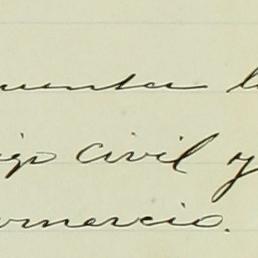 cuenta l
igo civil y
comercio.